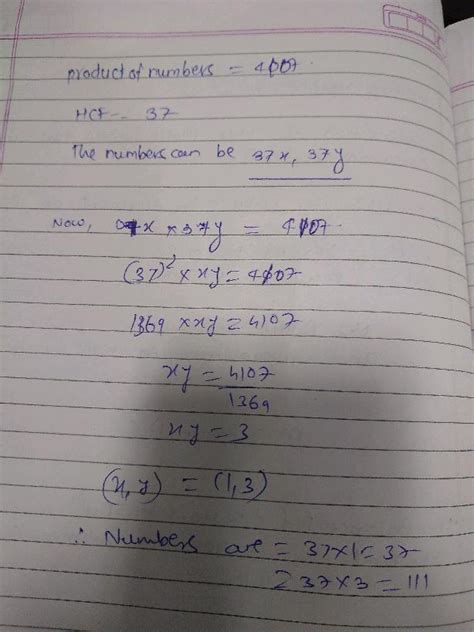 product of numbers = 4107.
HCF = 37
The numbers can be 37x, 37y
Now, 37x × 37y = 4107.
(37)² × xy = 4107
1369 × xy = 4107
xy = 4107
1369
xy = 3
(x, y) = (1,3)
∴ Numbers are = 37×1 = 37
2 37×3 = 111